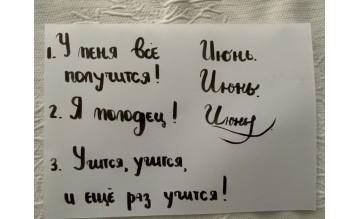 1. У меня всё
получится!
2. Я молодец!
3. Учится, учится,
и ещё раз учится!
Июнь.
Июнь.
Июнь